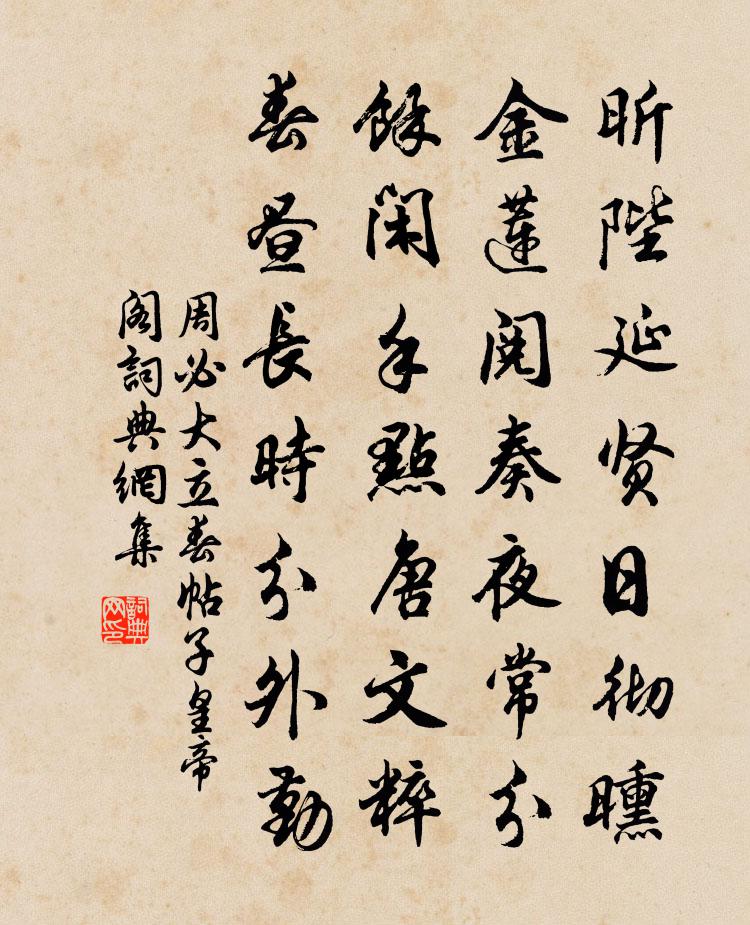 昕陛延贤日彻曛
金莲阅奏夜常分
馀闲手點唐文粹
春昼長時分外勤
周必大立春帖子皇帝
阁詞典網集
詞典网印